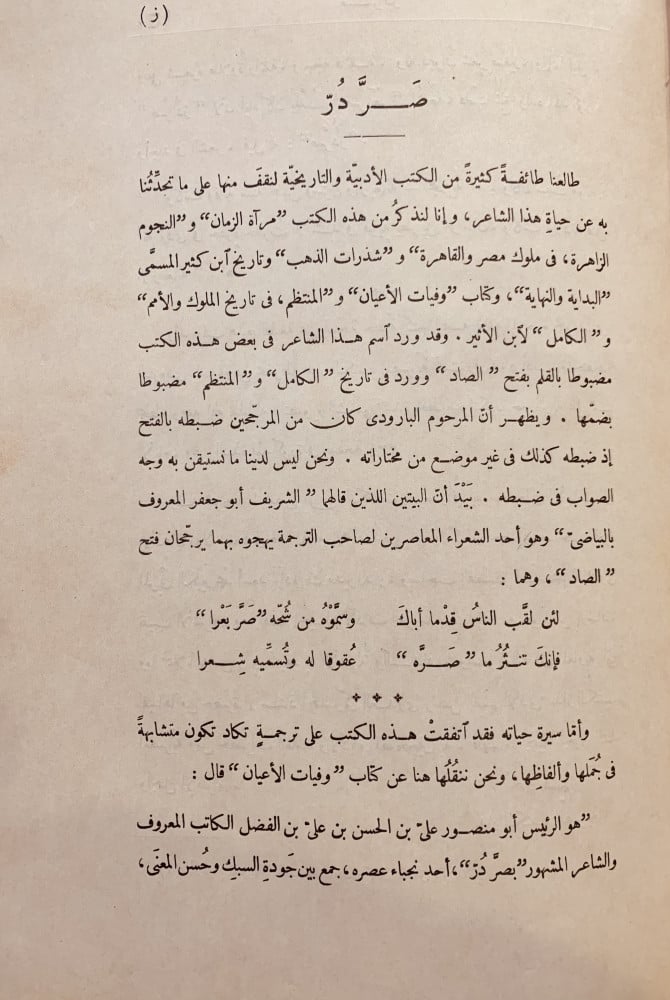 (ز)
صَـــرَّ دُرّ
طالعنا طائفــةً كثيرةً من الكتب الأدبيّة والتاريخيّة لنقفَ منها على ما تحدِّثُنا
به عن حياةِ هذا الشاعر، وإنا لنذكرُ من هذه الكتب ”مرآة الزمان“ و”النجوم
الزاهرة، فى ملوك مصر والقاهرة“ و”شذرات الذهب“ وتاريخ ٱبن كثير المسمَّى
”البداية والنهاية“، وكتاب ”وفيات الأعيان“ و”المنتظم، فى تاريخ الملوك والأمم“
و”الكامل“ لٱبن الأثير . وقد ورد ٱسم هــذا الشاعر فى بعض هــذه الكتب
مضبوطا بالقلم بفتح ”الصاد“ وورد فى تاريخ ”الكامل“ و”المنتظم“ مضبوطا
بضمّها . ويظهــر أنّ المرحوم البارودى كان من المرجّحين ضـبطه بالفتح
إذ ضبطه كذلك فى غير موضــع من مختاراته . ونحن ليس لدينا ما نستيقن به وجه
الصواب فى ضـبطه . بَيْدَ أنّ البيتين اللذين قالهما ”الشريف أبو جعفر المعروف
بالبياضىّ“ وهو أحد الشعراء المعاصرين لصاحب الترجمة يهجوه بهما يرجّحان فتح
”الصاد“، وهما :
لئن لقَّب الناسُ قِدْما أباكَ وسمَّوْهُ من شُحّه ”صَرَّ بَعْرا“
فإنكَ تنــثُرُ ما ”صَــرَّه“ عُقوقا له وتُسمِّيه شِــعرا
وأمّا سيرة حياته فقد ٱتفقتْ هــذه الكتب على ترجمــةٍ تكاد تكون متشابهةً
فى جُمَلها وألفاظِها، ونحن ننقُلُها هنا عن كتاب ”وفيات الأعيان“ قال :
”هو الرئيس أبو منصــور علىّ بن الحسن بن علىّ بن الفضل الكاتب المعروف
والشاعر المشهور ”بصرَّ دُرّ“، أحد نجباء عصره، جمع بين جَودةِ السبكِ وحُسن المعنَى،